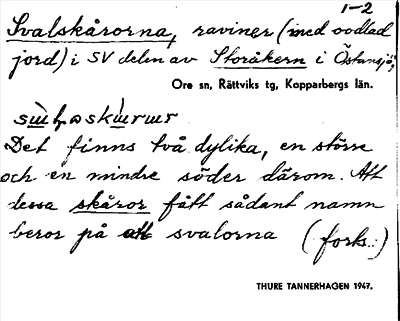 1-2
Svalskårorna, raviner (med oodlad
jord) i SV delen av Storåkern i Östansjö,
Ore sn, Rättviks tg, Kopparbergs län.
Det finns två dylika, en större
och en mindre söder därom. Att
dessa skåror fått sådant namn
beror på att svalorna (forts.:)
THURE TANNERHAGEN 1947.